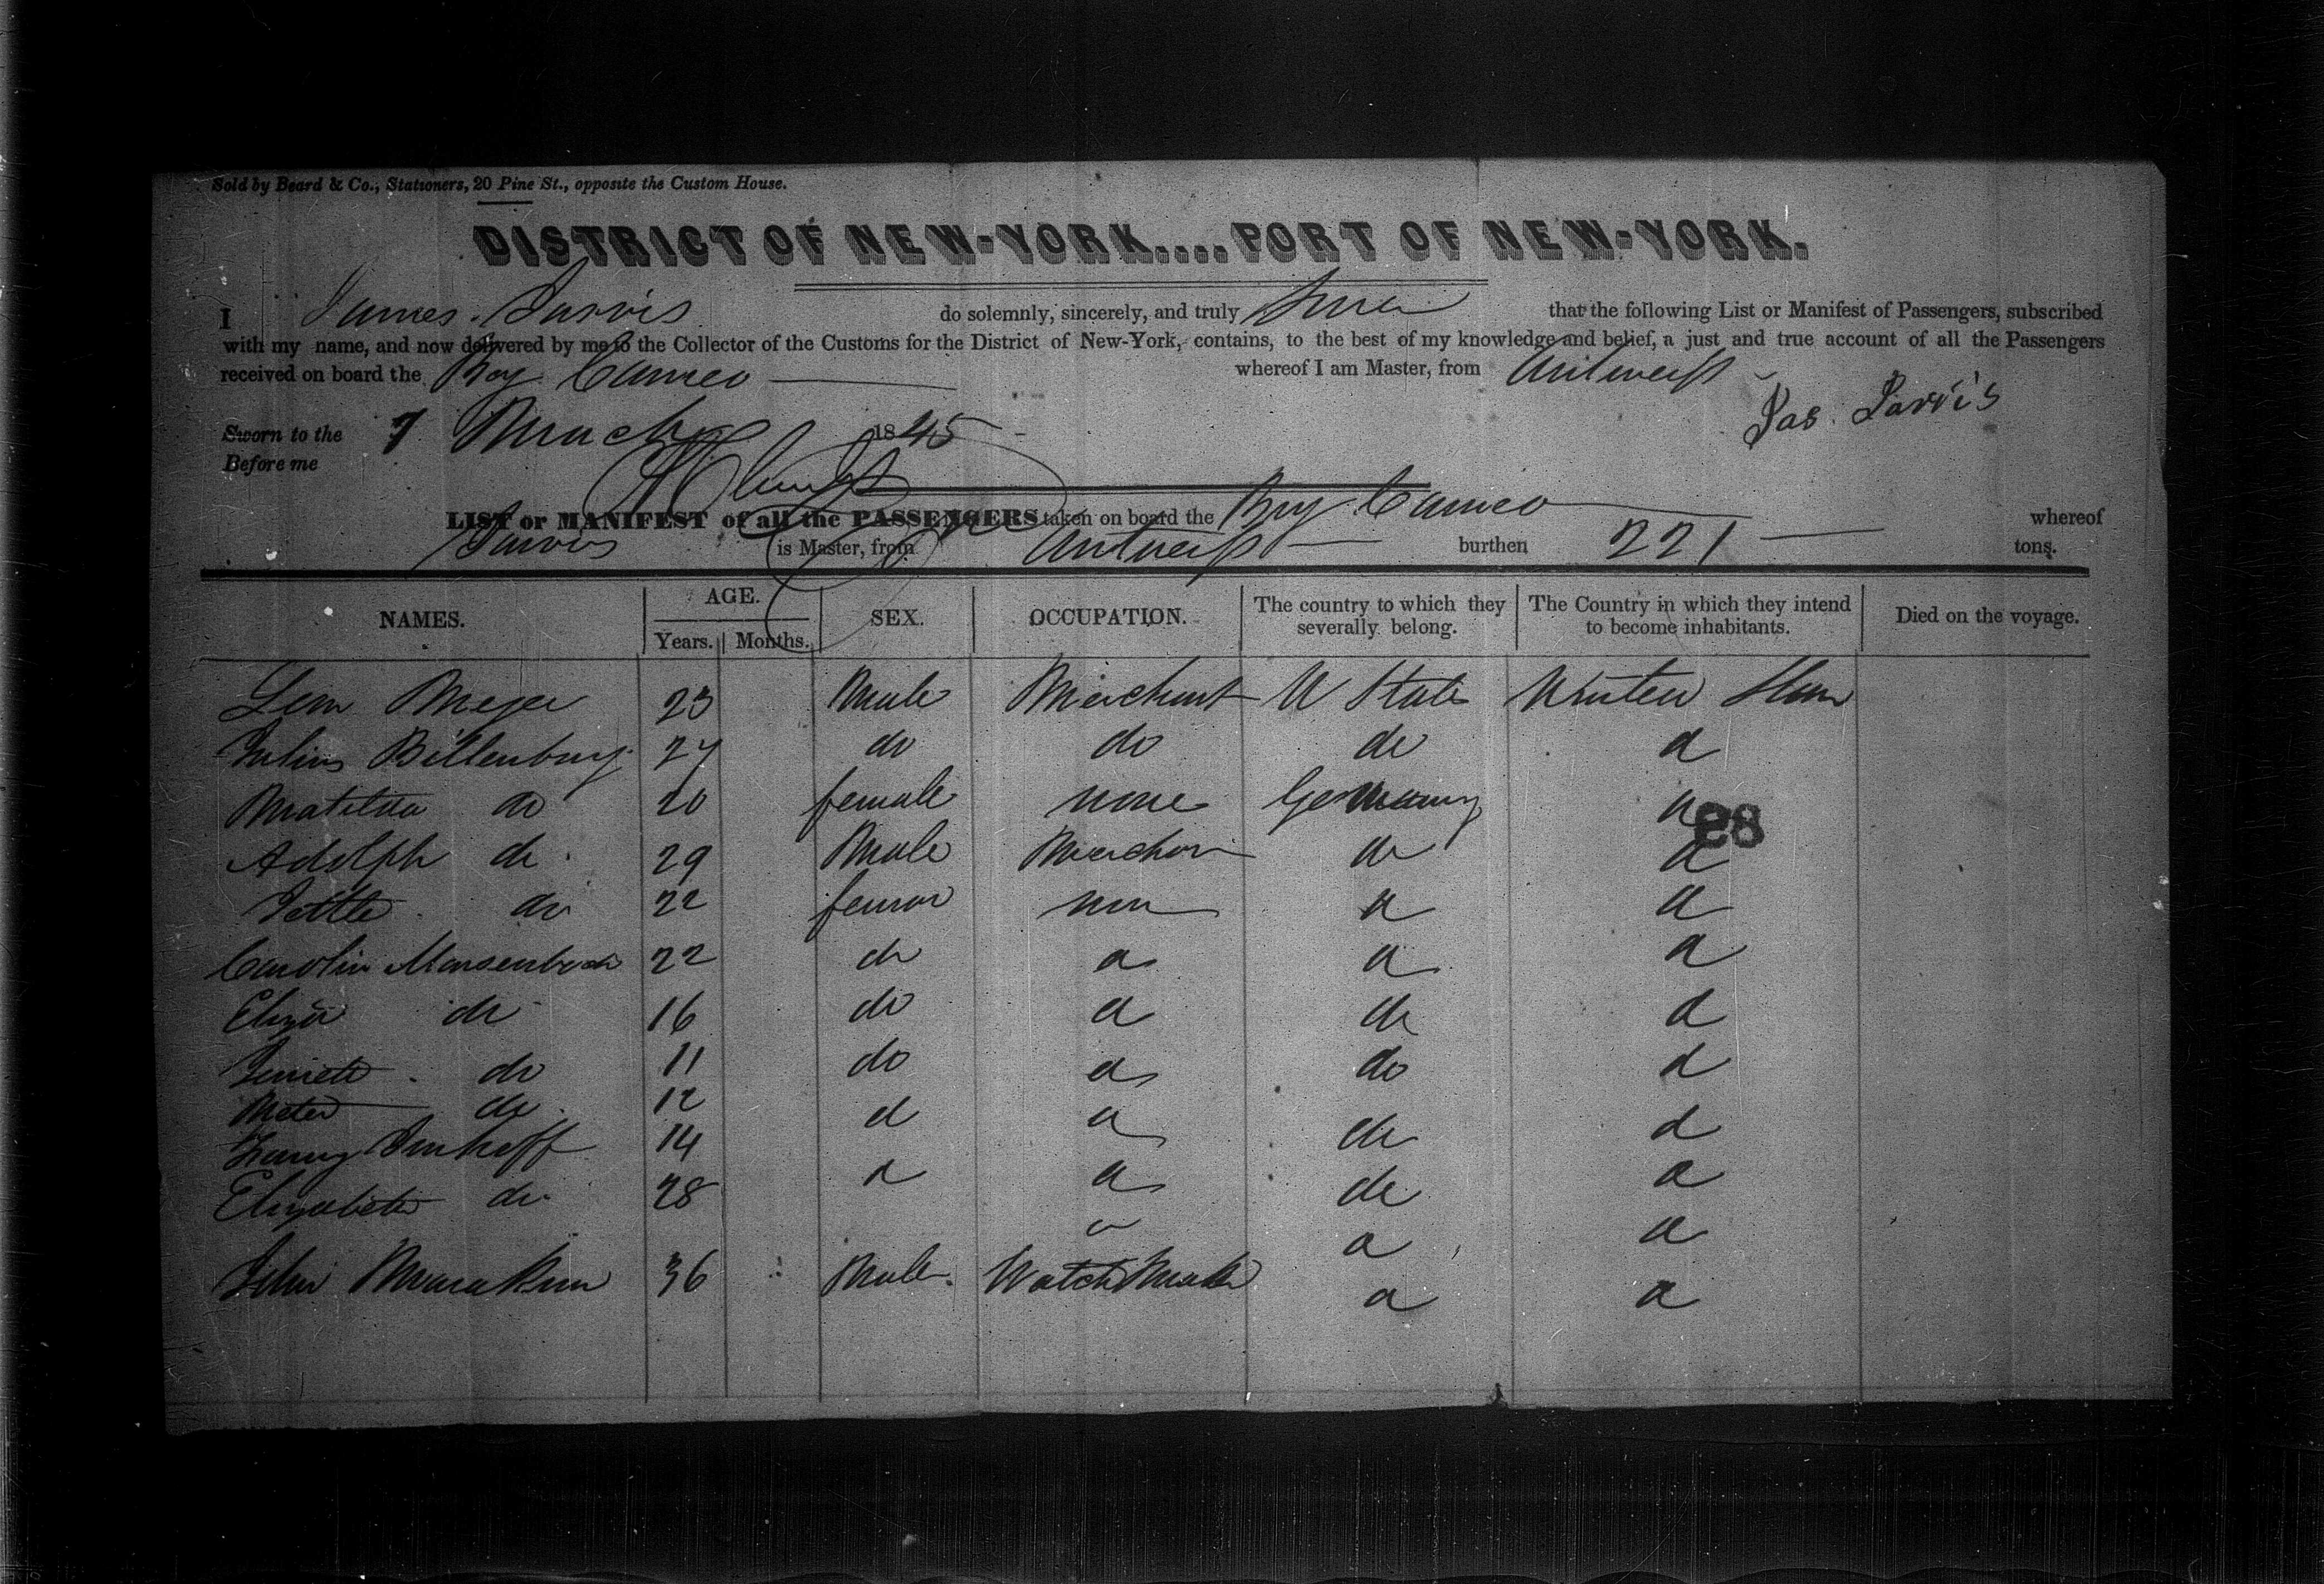 Sold by Beard & Co., Stationers, 20 Pine St., opposite the Custom House.
DISTRICT OF NEW-YORK....PORT OF NEW-YORK.
I James Jarvis do solemnly, sincerely, and truly that the following List or Manifest of Passengers, subscribed
with my name, and now delivered by me to the Collector of the Customs for the District of New-York, contains, to the best of my knowledge and belief, a just and true account of all the Passengers
received on board the Cameo whereof I am Master, from Antwerp
Jas. Jarvis
Sworn to the 7 March 1845
Before me
LIST or MANIFEST of all the PASSENGERS taken on board the Cameo whereof
Jarvis is Master, from Antwerp burthen 221 tons.
NAMES. AGE. SEX. OCCUPATION. The country to which they severally belong. The Country in which they intend to become inhabitants. Died on the voyage.
Years. Months.
23 Male Merchant U State
Julius Billenburg 27 do do do d
Matilda do 20 female none Germany
28
Adolph do 29 Male do d
do 22 d d
Carolin 22 do d d d
Eliza do 16 do d do d
do 11 do d do d
do 12 d d do d
Fanny Imhoff 14 d d do d
Elizabeth do 28 d d
John 36 Male Watch Maker d d